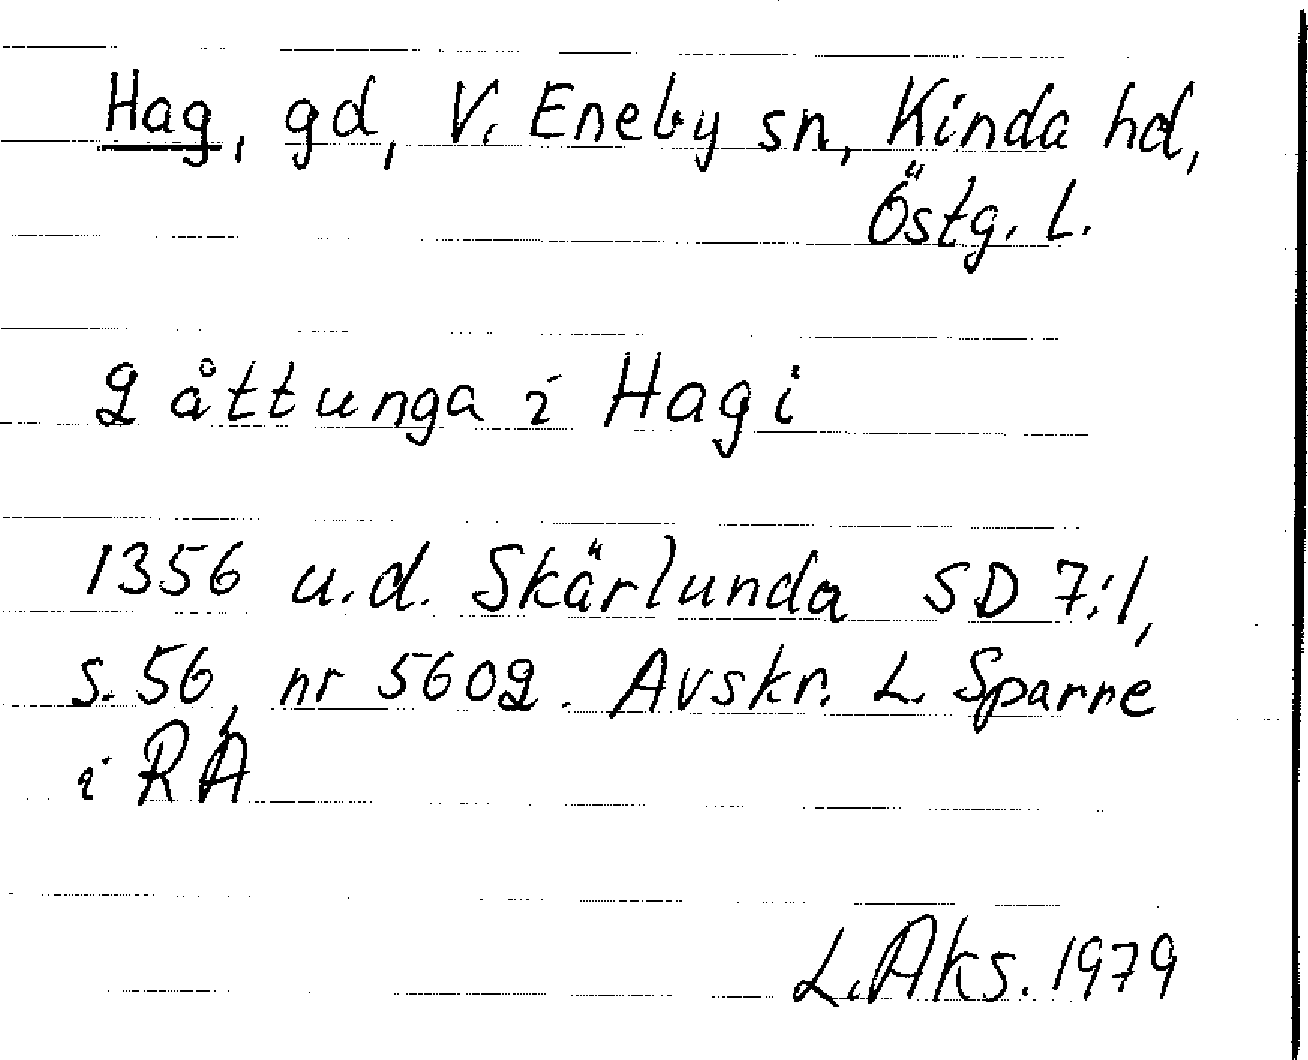 Hag, gd, V. Eneby sn, Kinda hd,
Östg. L.
2 åttunga i Hagi
1356 u.d. Skärlunda SD 7:1,
s. 56, nr 5602. Avskr. L Sparre
i RA
L. Aks. 1979